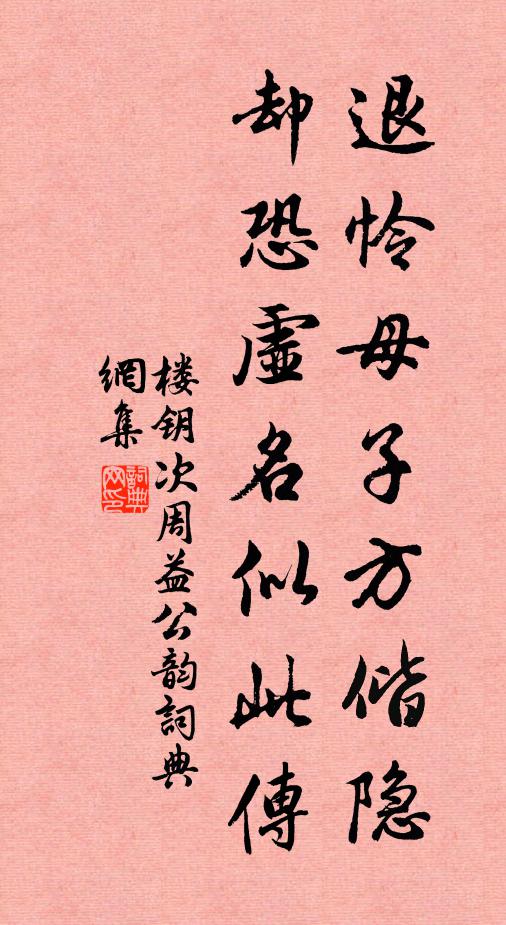 退怜母子方偕隐
却恐虛名似此傳
楼钥次周益公韵詞典
網集
詞典
网印